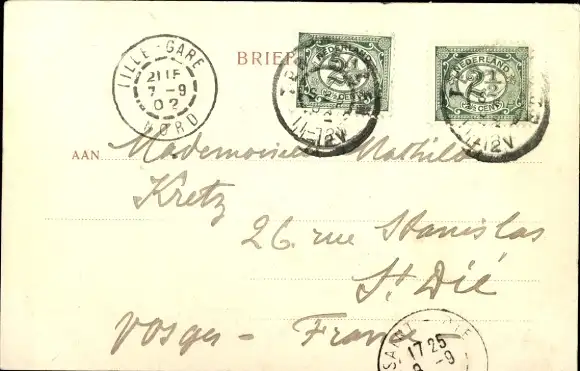 LILLE-GARE
21 15
7-9
02
NORD
BRIEF
NEDERLAND
2½
CENT
11-12V
NEDERLAND
2½
CENT
12V
AAN
Mademoiselle Mathilde
Kretz
26 rue Stanislas
St Dié
Vosges - France
SAINT DIE
17 25
-9